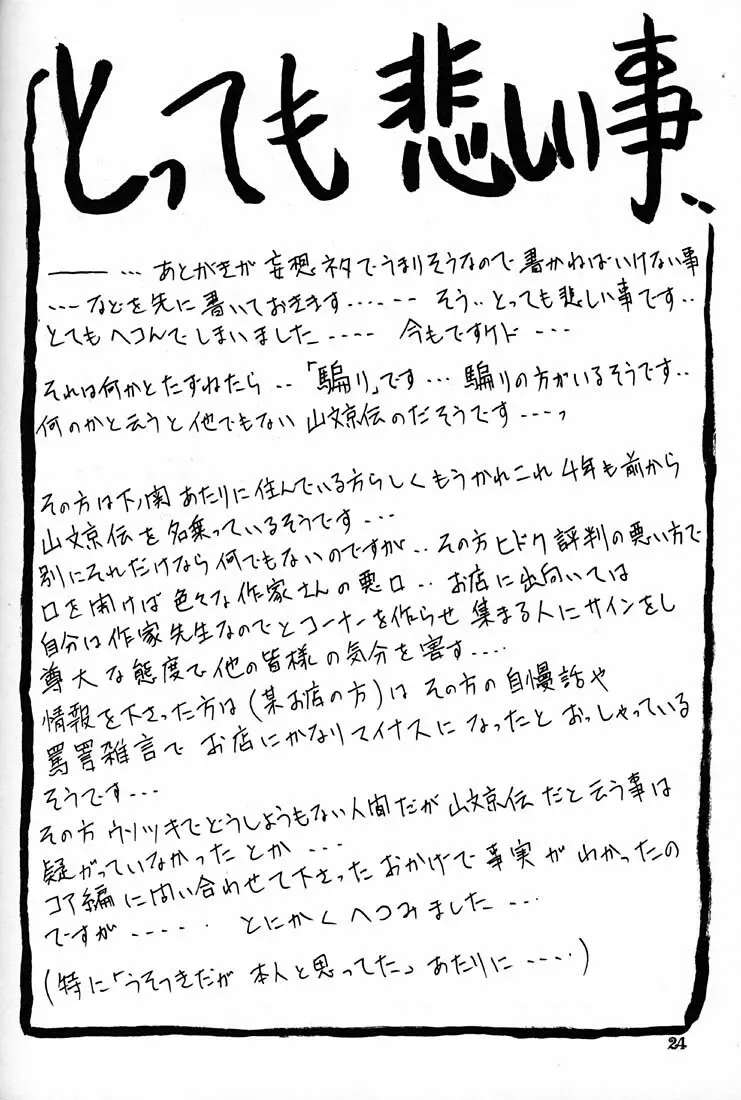 とっても悲しい事‥
――― … あとがきが 妄想ネタでうまりそうなので 書かねばいけない事
…‥ などを先に書いておきます…‥‥ そう‥とっても悲しい事です‥
とてもヘコんでしまいました…‥‥ 今もですケド …‥
それは何かとたずねたら ‥「騙り」です … 騙りの方がいるそうです‥
何のかと云うと他でもない 山文京伝のだそうです…‥っ
その方は下ノ関あたりに住んでいる方らしくもうかれこれ 4年も前から
山文京伝を名乗っているそうです…‥
別にそれだけなら何でもないのですが‥その方ヒドク評判の悪い方で
口を開けば色々な作家さんの悪口‥ お店に出向いては
自分は作家先生なのでとコーナーを作らせ 集まる人にサインをし
尊大な態度で他の皆様の気分を害す…‥
情報を下さった方は(某お店の方)は その方の自慢話や
罵詈雑言で お店にかなりマイナスに なったと おっしゃっている
そうです…‥
その方 ウソツキでどうしようもない人間だが 山文京伝だと云う事は
疑がっていなかったとか …‥
コア編に問い合わせて下さった おかげで 事実が わかったの
ですが …‥‥ とにかく へコみました …‥
(特に「うそつきだが 本人と思ってた」あたりに …‥‥)
24